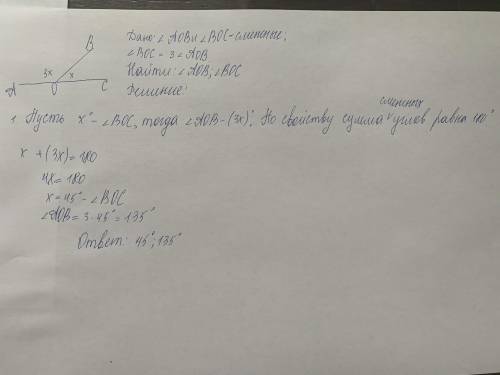 Дано: ∠AOB и ∠BOC - смежные;
∠BOC = 3∠AOB
Найти: ∠AOB; ∠BOC
Решение:
B
3x x
A O C
смежных
1. Пусть x° - ∠BOC, тогда ∠AOB - (3x)°. По свойству сумма углов равна 180°
x + (3x) = 180
4x = 180
x = 45° - ∠BOC
∠AOB = 3·45° = 135°
Ответ: 45°; 135°